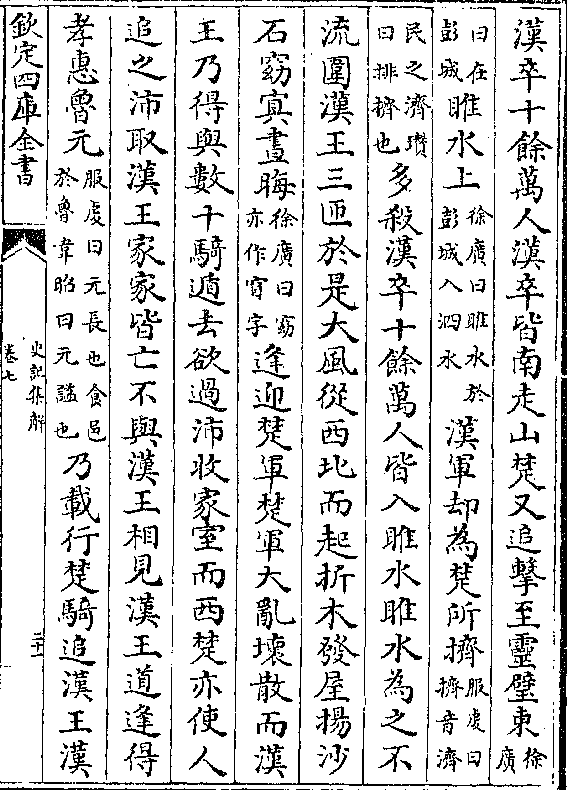 漢卒十餘萬人漢卒皆南走山楚又追擊至靈璧東徐廣
曰在彭城睢水上徐廣曰睢水於彭城入泗水漢軍却為楚所擠服虔曰擠音濟
民之濟瓚曰排擠也多殺漢卒十餘萬人皆入睢水睢水為之不
流圍漢王三匝於是大風從西北而起折木發屋揚沙
石窈冥晝晦徐廣曰窈亦作窅字逢迎楚軍楚軍大亂壞散而漢
王乃得與數十騎遁去欲過沛收家室而西楚亦使人
追之沛取漢王家家皆亡不與漢王相見漢王道逢得
孝惠魯元服虔曰元長也食邑於魯韋昭曰元諡也乃載行楚騎追漢王漢
欽定四庫全書
史記集解
卷七
二十一